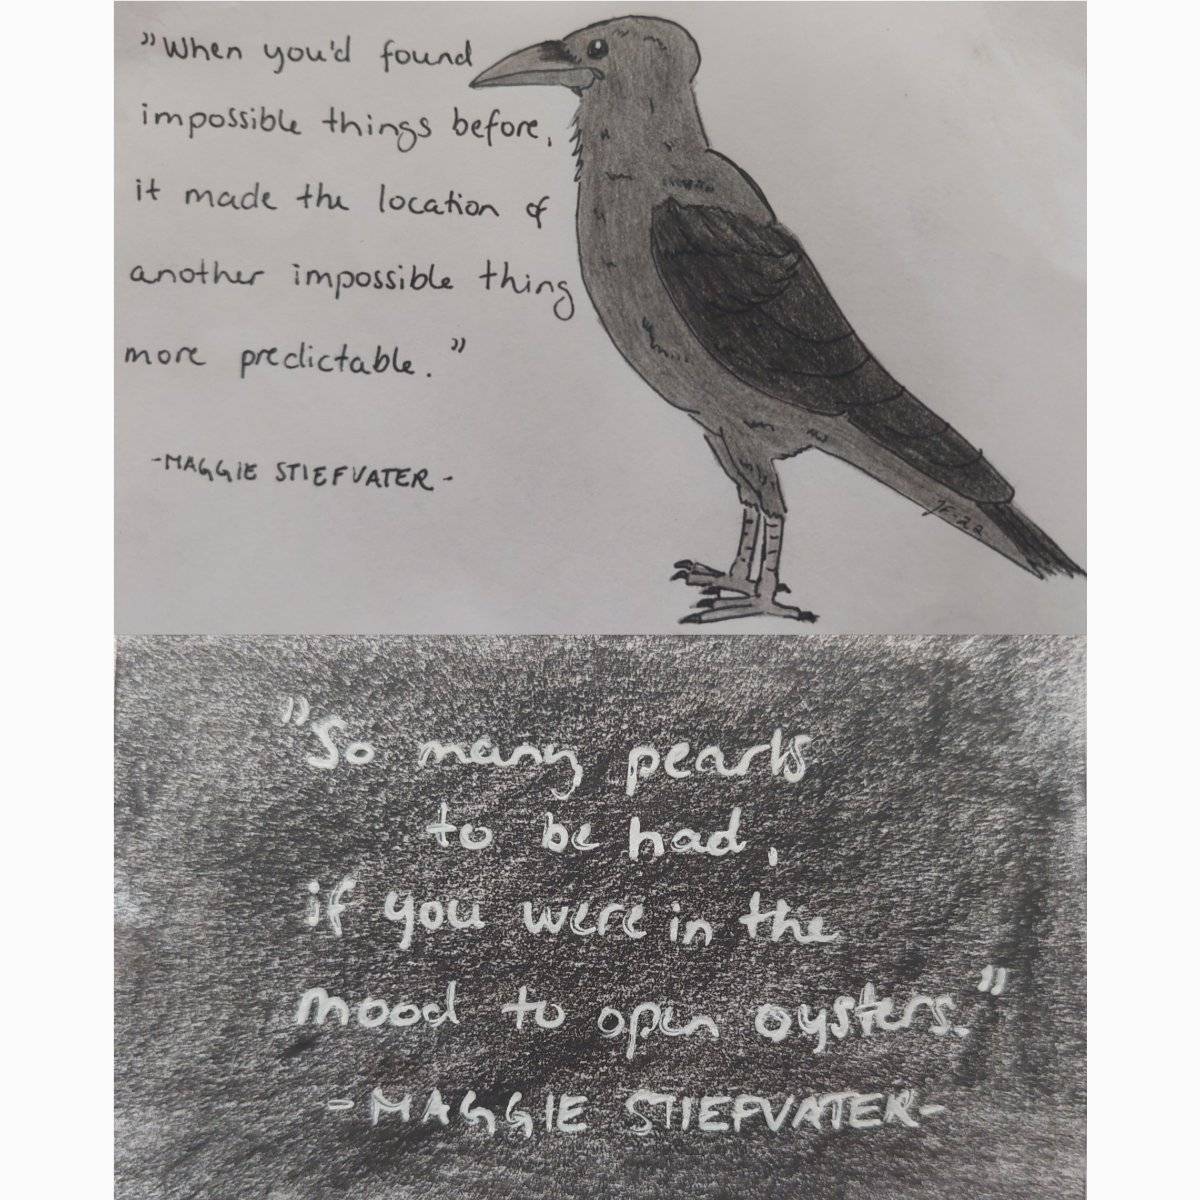 "When you'd found
impossible things before,
it made the location of
another impossible thing
more predictable."
-MAGGIE STIEFVATER-
JF-22
"So many pearls
to be had,
if you were in the
mood to open oysters."
-MAGGIE STIEFVATER-